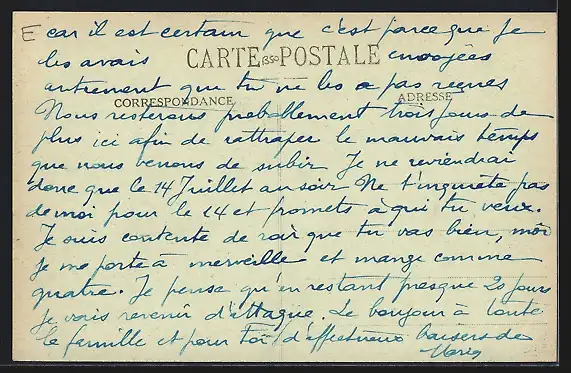 E car il est certain que c'est parce que je
les avais envoyées
CARTE POSTALE
autrement que tu ne les a pas reçues
CORRESPONDANCE ADRESSE
Nous resterons probablement trois jours de
plus ici afin de rattraper le mauvais temps
que nous venons de subir Je ne reviendrai
donc que le 14 Juillet au soir Ne t'inquiète pas
de moi pour le 14 et promets à qui tu veux.
Je suis contente de voir que tu vas bien, moi
je me porte à merveille et mange comme
quatre. Je pense qu'en restant presque 20 jours
je vais revenir d'attaque. Le bonjour à toute
la famille et pour toi d'affectueux baisers de